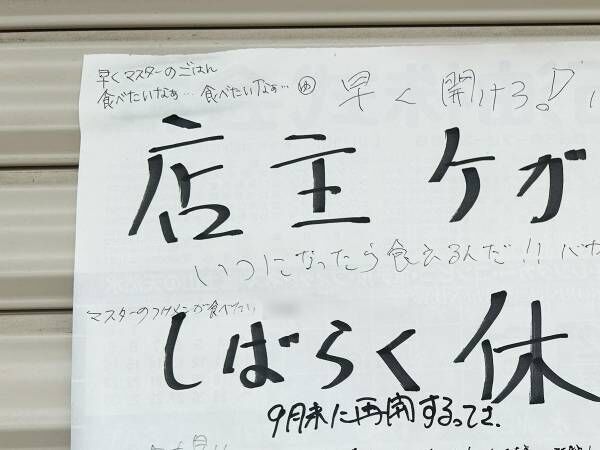 早くマスターのごはん
食べたいなぁ… 食べたいなぁ… ゆ
早く開けろ!
店主 ケガ
いつになったら食えるんだ!! バカ
マスターのつけメンが食べたい
しばらく休
9月末に再開するってさ.